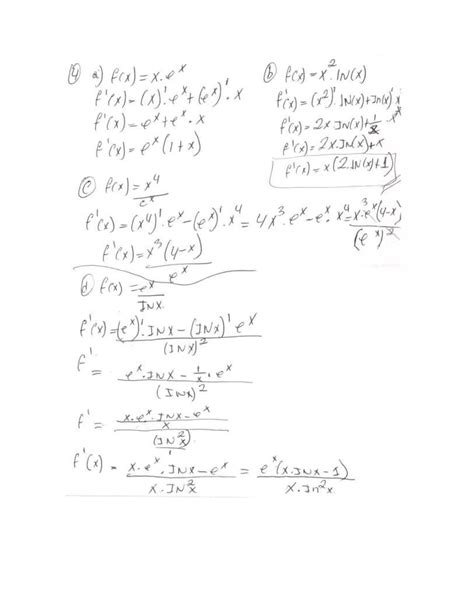 ④ a) f(x) = x · e^x
f'(x) = (x)' · e^x + (e^x)' · x
f'(x) = e^x + e^x · x
f'(x) = e^x (1 + x)
ⓑ f(x) = x^2 · lN(x)
f'(x) = (x^2)' · lN(x) + ln(x)' · x^2
f'(x) = 2x · JN(x) + 1/x · x^2
f'(x) = 2x · JN(x) + x
f'(x) = x (2 · lN(x) + 1)
ⓒ f(x) = x^4 / e^x
f'(x) = (x^4)' · e^x - (e^x)' · x^4 = 4x^3 · e^x - e^x · x^4 = x^3 · e^x (4-x) / (e^x)^2
f'(x) = x^3 (4-x) / e^x
ⓓ f(x) = e^x / JNX
f'(x) = (e^x)' · JNX - (JNX)' e^x / (lNX)^2
f' = e^x · JNX - 1/x · e^x / (JNX)^2
f' = x · e^x · JNX - e^x / x / (JN^2 x)
f'(x) = x · e^x · JNX - e^x / x · JN^2 x = e^x (x · JNX - 1) / x · Jn^2 x